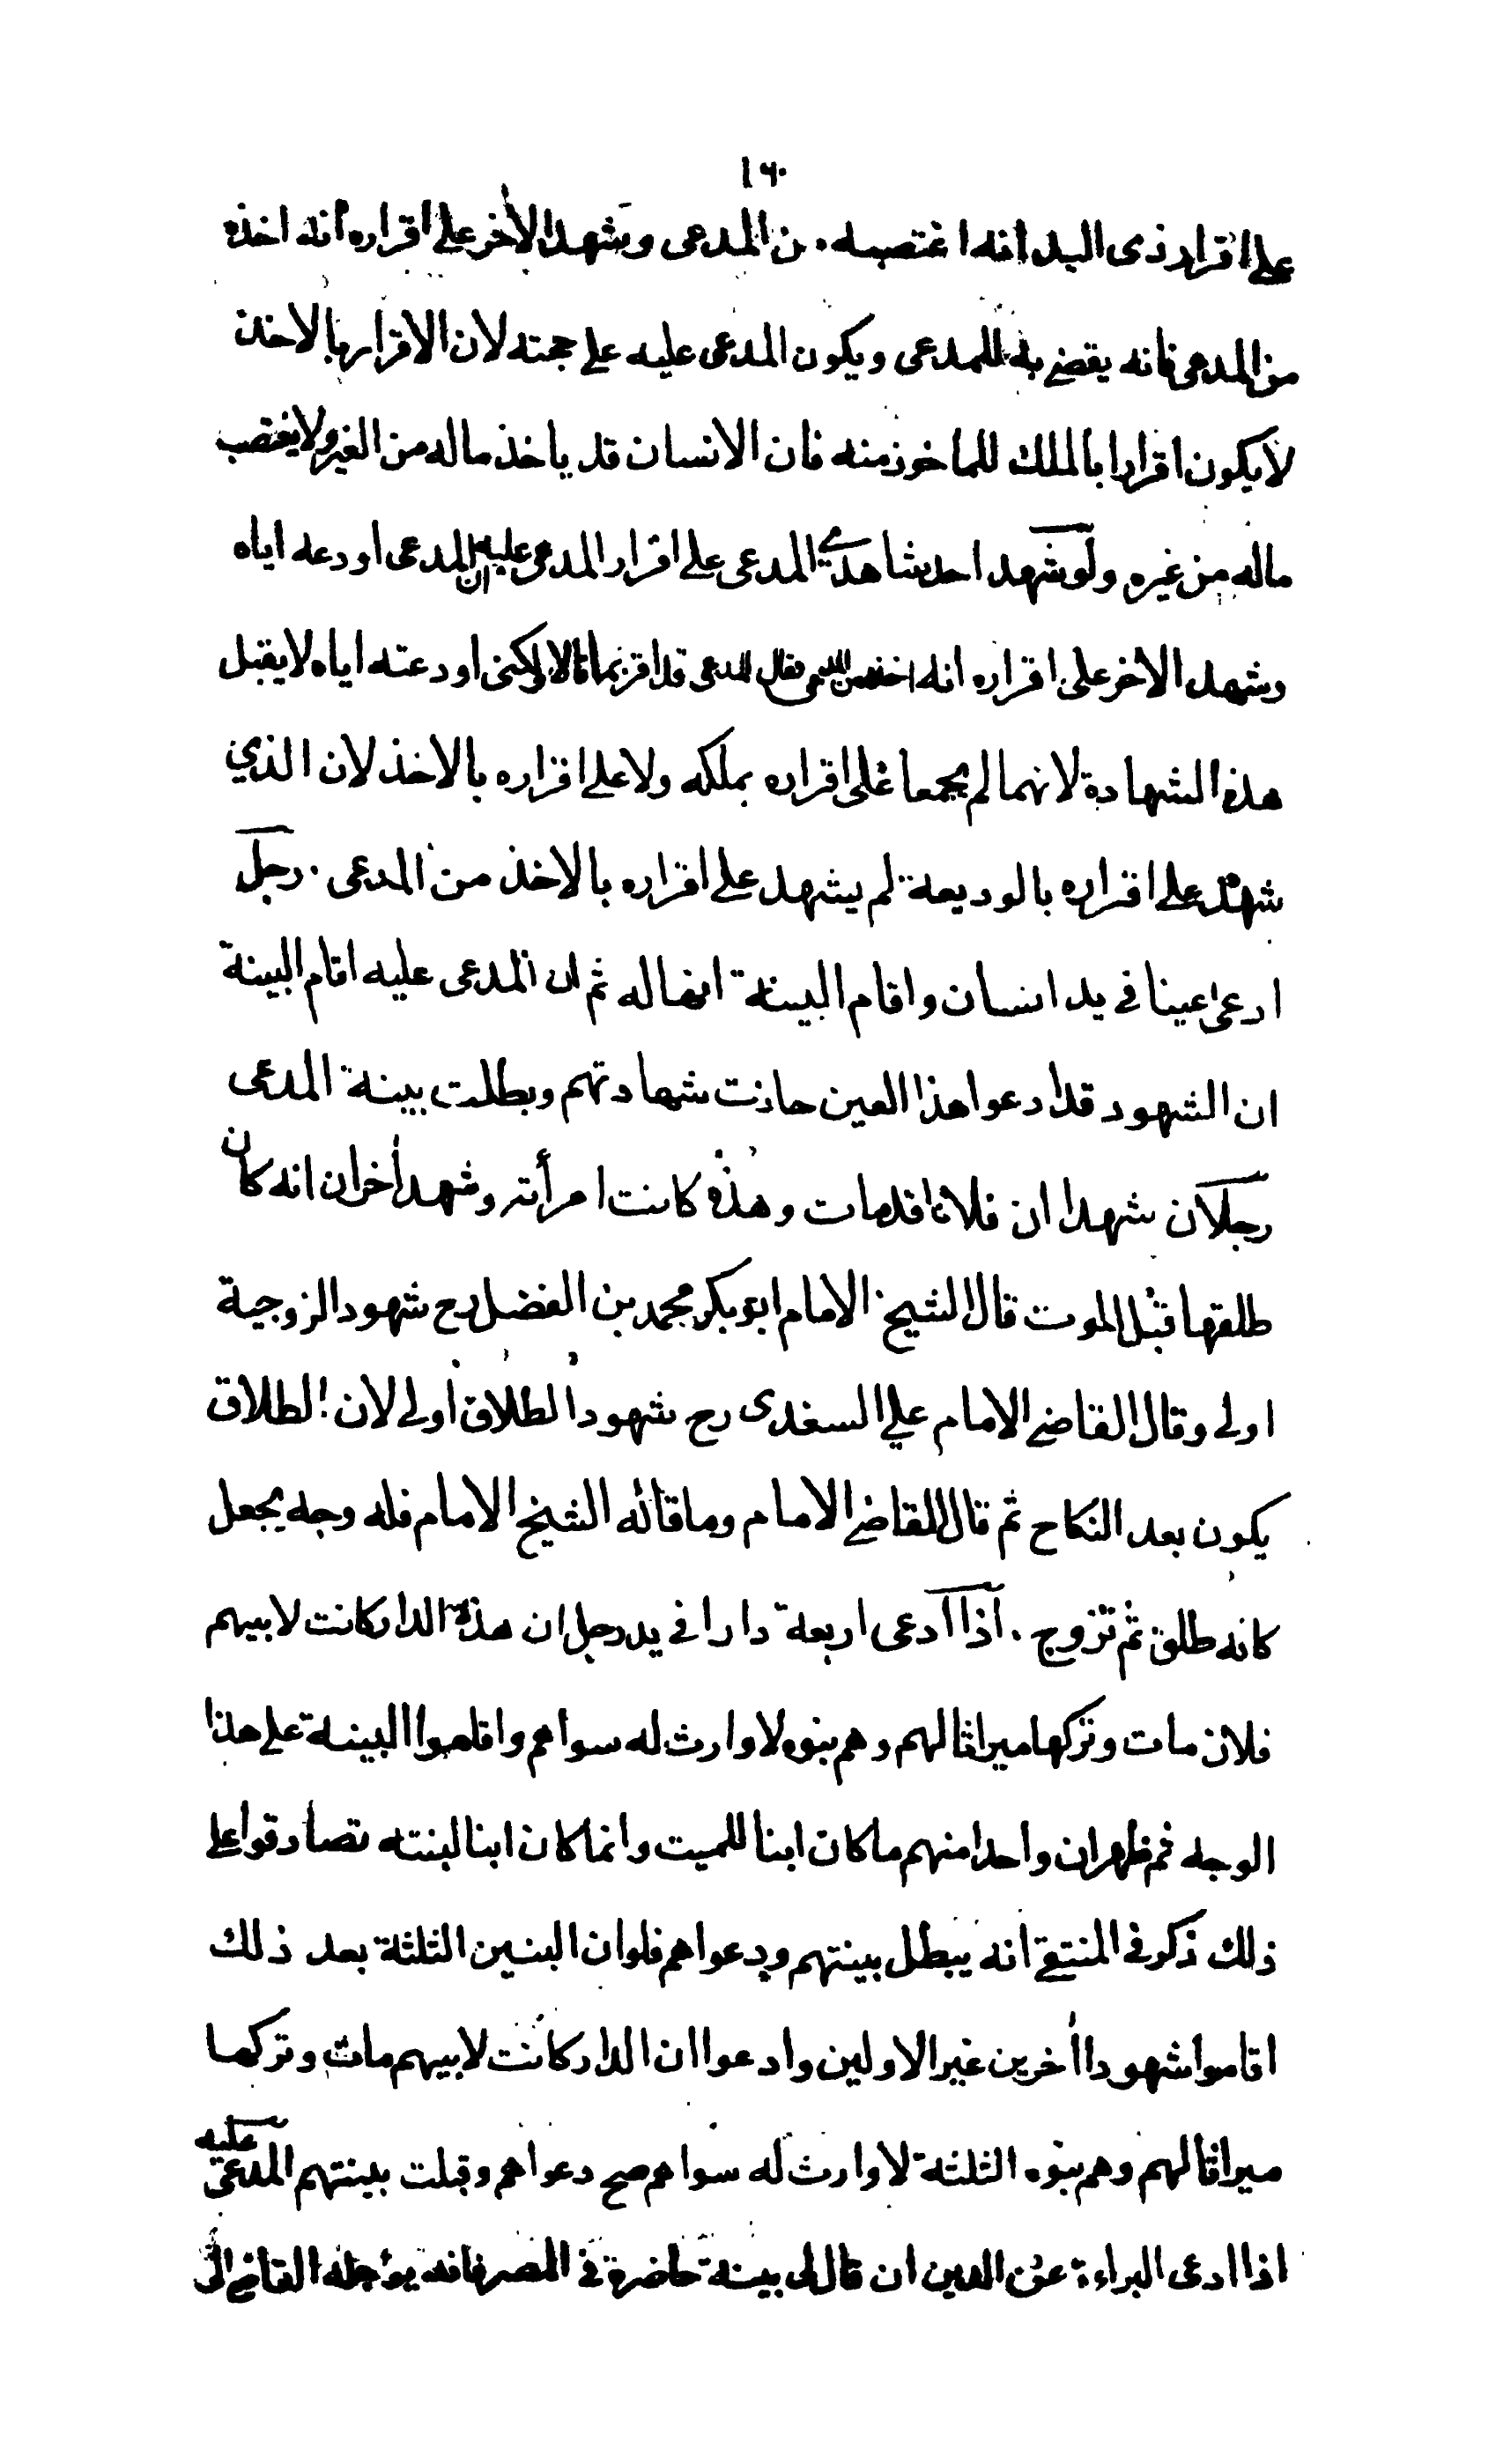 ١٦٠
على اقرار ذى اليد انه اغتصبه من المدعى وشهد الأخر على اقراره انه اخذه
من المدعى فانه يقضے به للمدعى ويكون المدعى عليه على حجته لان الاقرار بالاخذ
لا يكون اقرارا بالملك للماخوذ منه فان الانسان قد ياخذ ماله من الغير ولا يغتصب
ماله من غيره ولو شهد احد شاهدے المدعى على اقرار المدعى عليه ان المدعى اودعه اياه
وشهد الأخر على اقراره انه اخذه من المدعى فقال المدعى قد اقر بما قالا ولكنى اودعته اياه لا يقبل
هذه الشهادة لانهما لم يجمعا على اقراره بملكه ولا على اقراره بالاخذ لان الذي
شهد على اقراره بالوديعة لم يشهد على اقراره بالاخذ من المدعى . رجل
ادعى عينا فى يد انسان واقام البينة انها له ثم ان المدعى عليه اقام البينة
ان الشهود قد ادعوا هذا العين جازت شهادتهم وبطلت بينة المدعى
رجلان شهدا ان فلانا قد مات وهذه كانت امرأته وشهد أخران انه كان
طلقها قبل الموت قال الشيخ الامام ابو بكر محمد بن الفضل رح شهود الزوجية
اولى وقال القاضے الامام علي السغدى رح شهود الطلاق أولى لان الطلاق
يكون بعد النكاح ثم قال القاضے الامام وما قاله الشيخ الامام فله وجه يجعل
كانه طلق ثم تزوج . اذا ادعى اربعة دارا فى يد رجل ان هذه الدار كانت لابيهم
فلان مات وتركها ميراثا لهم وهم بنوه لا وارث له سواهم واقاموا البينة على هذا
الوجه ثم ظهر ان واحدا منهم ما كان ابنا للميت وانما كان ابنا لبنته تصادقوا على
ذلك ذكر فى المنتقے انه يبطل بينتهم ودعواهم فلو ان البنين الثلثة بعد ذلك
اقاموا شهودا أخرين غير الاولين وادعوا ان الدار كانت لابيهم مات وتركها
ميراثا لهم وهم بنوه الثلثة لا وارث له سواهم صح دعواهم وقبلت بينتهم المدعى عليه
اذا ادعى البراءة عن الدين ان قال لى بينة حاضرة فى المصر فانه يؤجله القاضے الى